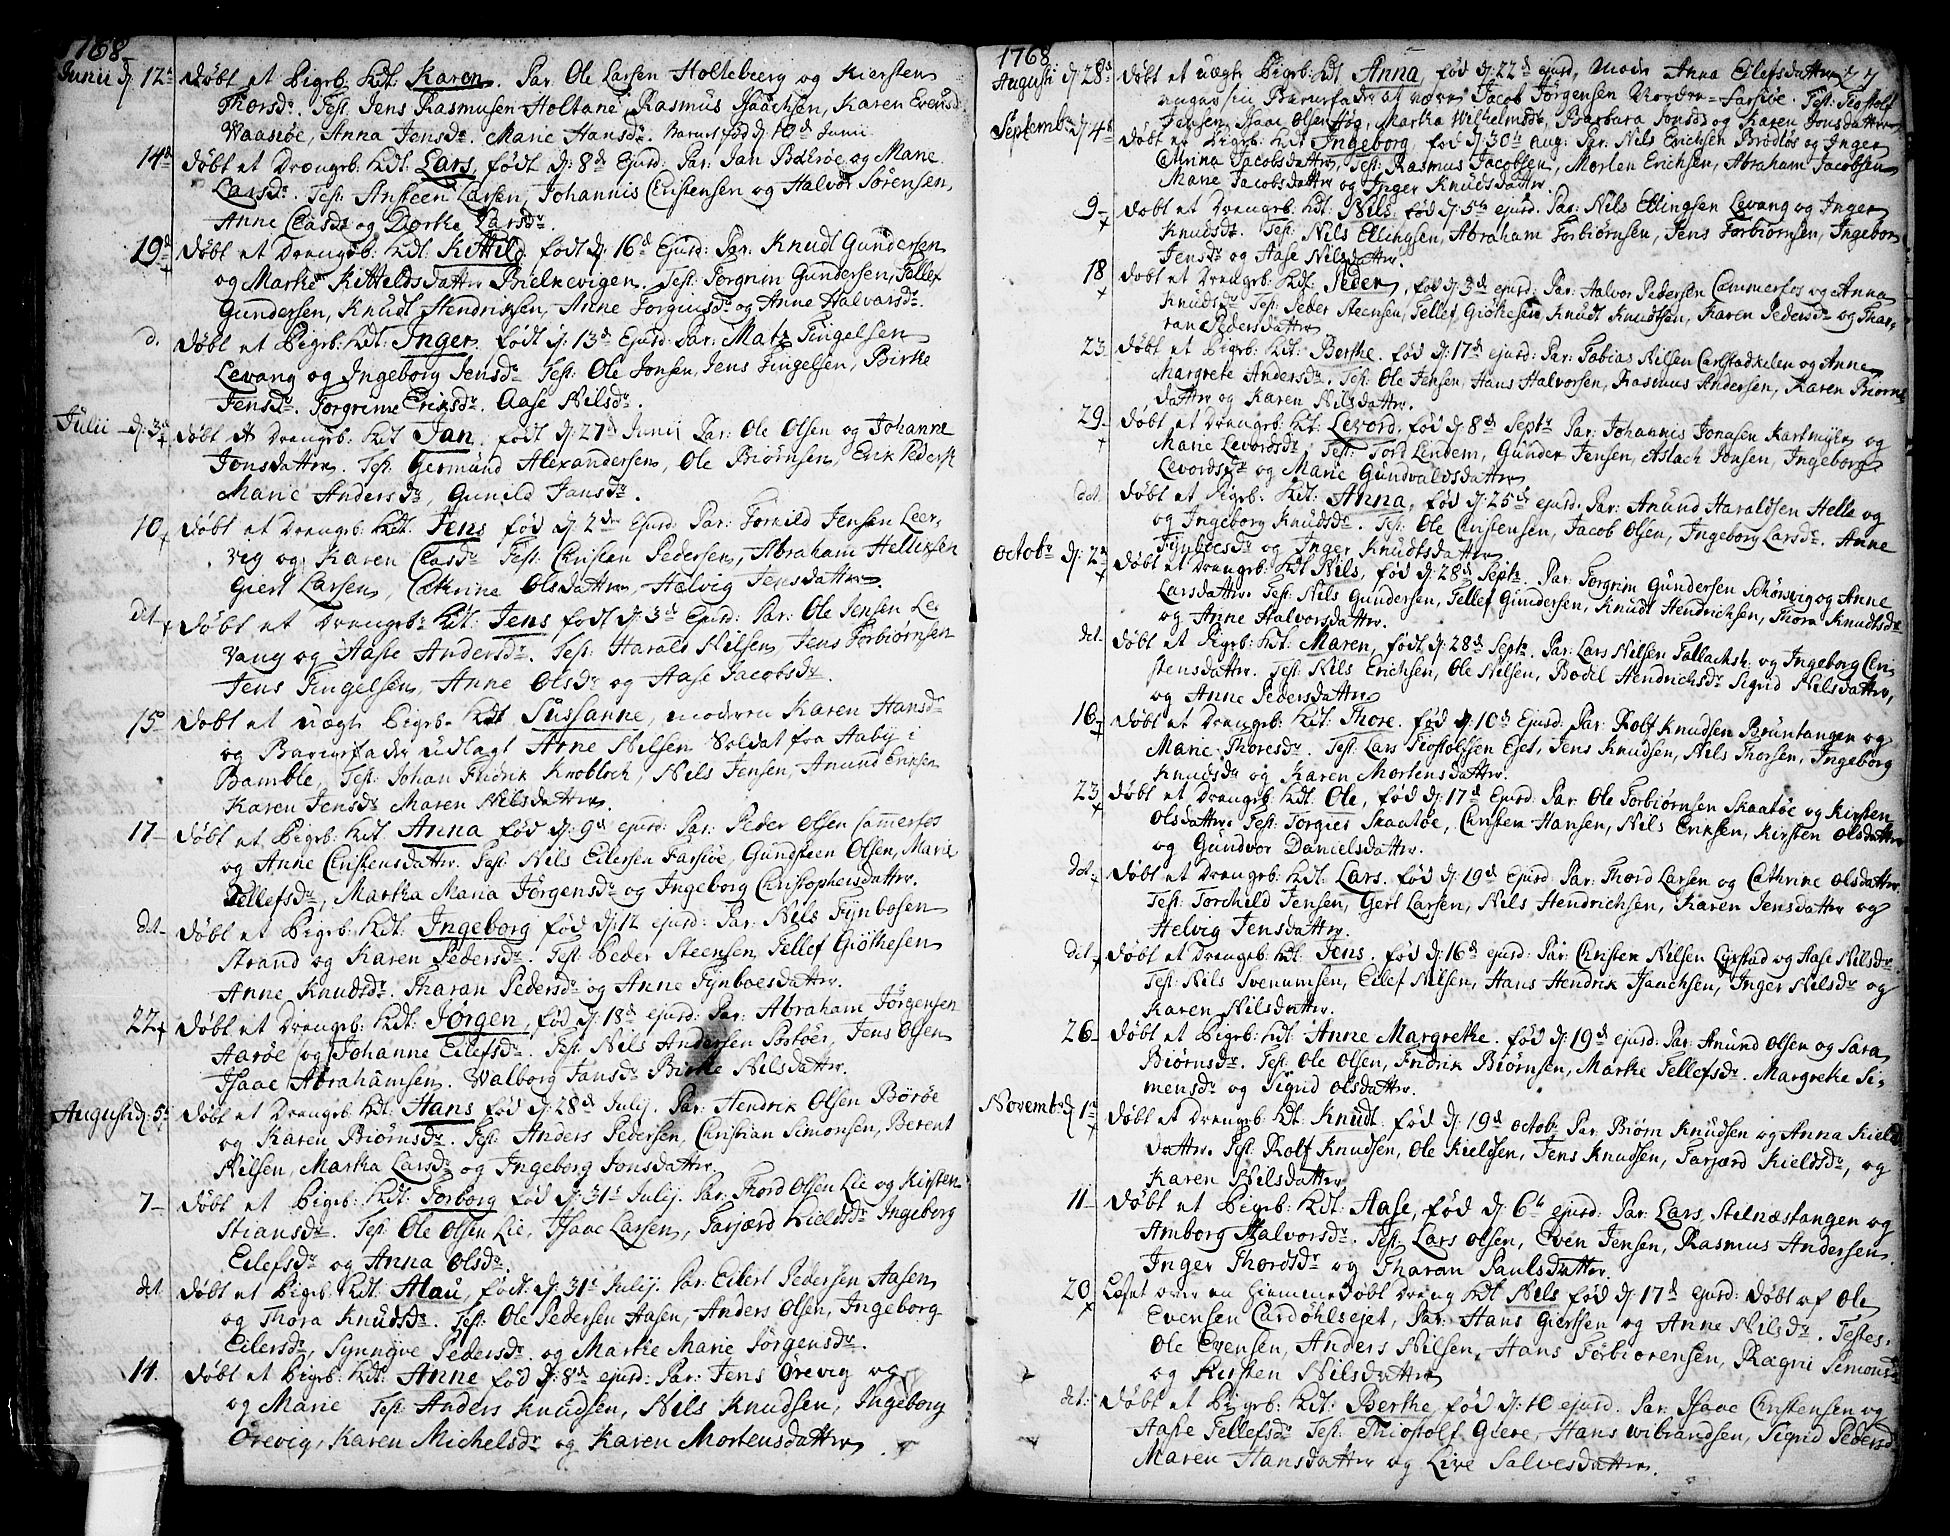 1768
Junii dj 12te døbt et Pigeb: kdt. Karen. Par. Ole Larsen Holteberg og Kiersten
Thorsdr. Test. Jens Rasmusen Holtane Rasmus Isaachsen, Karen Evensd
Vaasøe, Anna Jensdr. Marie Hansdr. Barnet fød dj 10d Junii
14d døbt et Drengb: kdt. Lars, født dj: 8d Ejusd: Par: Jan Børøe og Marie
Larsdr. Test. Ansteen Larsen, Johannis Christensen og Halvor Sørensen,
Anne Clasdr og Dorthe Larsdr.
19d døbt et Drengb: kdt. Kittild født dj: 16d Ejusd: Par. Knudt Gundersen
og Marthe Kittildsdatter Bielkevigen. Test. Torgrim Gundersen, Tellef
Gundersen, Knudt Hendrichsen, Anne Torgiusdr og Anne Halvorsdr.
d. døbt et Pigeb: kdt: Inger født dj: 13d Ejusd: Par: Matz Tingelsen
Levang og Ingeborg Jensdr Test. Ole Jonsen, Jens Tingelsen, Birthe
Jensdr. Torgrime Eriksdr. Aase Nilsdr.
Julii dj: 3d døbt et Drengb: kdt Jan. født dj: 27d Junii Par: Ole Olsen og Johanne
Jonsdatter. Test. Germund Alexandersen, Ole Biørnsen, Erik Peders
Marie Andersdr, Gunild Jansdr.
10 døbt et Drengb: kdt. Jens fød dj: 2de Ejusd Par: Torkild Jensen Leer-
vig og Karen Clasdr Test. Christen Pedersen, Abraham Helliksen
Giert Larsen, Cathrine Olsdatter, Helvig Jensdatter
det døbt et Drengb: kdt: Jens født dj: 3d Ejusd: Par: Ole Jensen Le
vang og Aase Andersdr. Test: Harald Nilsen, Jens Torbiørnsen
Jens Tingelsen, Anne Olsdr og Aase Jacobsdr.
15 døbt et uægte Pigeb. kdt Sussanne, moderen Karen Hansdr
og Barnefader udlagt Arne Nilsen Soldat fra Aaby i
Bamble, Test. Johan Fridrik Knobloch, Nils Jensen, Anund Eriksen
Karen Jensdr Maren Nilsdatter.
17 døbt et Pigeb: kdt. Anna fød dj: 9d ejusd: Par: Peder Olsen Cammerfos
og Anne Christensdatter. Test: Nils Eilersen Farsiøe, Gundsteen Olsen, Marie
Tellefsdr, Martha Maria Jørgensdr og Ingeborg Christophersdatter.
det døbt et Pigeb: kdt: Ingeborg fød dj: 12 ejusd: Par: Nils Fynbosen
Strand og Karen Pedersdr. Test: Peder Steensen Tellef Giøthesen
Anne Knudsdr. Tharan Pedersdr og Anne Fynboesdatter.
22 døbt et Drengb: kdt: Jørgen, fød dj: 18d ejusd: Par: Abraham Jørgensen
Aarøe og Johanne Eilefsdr. Test. Nils Andersen Postøer, Jens Olsen
Isaac Abrahamsen. Walborg Jansdr Birthe Nilsdatter.
Augusti dj: 5te døbt et Drengb: kdt: Hans fød dj: 28d Julij. Par: Hendrik Olsen Børøe
og Karen Biørnsdr. Test: Anders Pedersen, Christian Simonsen, Berent
Nilsen, Martha Larsdr og Ingeborg Jonsdatter
7 døbt et Pigeb: kdt: Torborg fød dj: 31t Julij. Par: Thord Olsen Lie og Kirsten
Stiansdr. Test: Ole Olsen Lie, Isaac Larsen, Tarjærd Kieldsdr Ingeborg
Eilefsdr og Anna Olsdr.
det døbt et Pigeb: kdt. Alau, født dj: 31t Julij. Par: Eilert Pedersen Aasen
og Thora Knudsdr. Test: Ole Pedersen Aasen, Anders Olsen, Ingeborg
Eilersdr, Synnøve Pedersdr og Marthe Marie Jørgensdr.
14. døbt et Pigeb: kdt. Anne fød dj: 8d ejusd: Par: Jens Ørevig og
og Marie Test Anders Knudsen, Nils Knudsen, Ingeborg
Ørevig, Karen Michelsdr og Karen Mortensdatter.
1768 77
Augusti dj: 28d døbt et uægte Pigeb: kdt Anna, fød dj: 22d ejusd, Moder Anna Eilefsdatter
angav sin Barnefader at være Jacob Jørgensen Nordre-Farsiøe. Test: Tiostolf
Jensen, Isaac Olsen Høg, Martha Wilhelmsdr, Barbara Jonsdr og Karen Jonsdatter
Septembr dj 4d døbt et Pigeb: kdt Ingeborg, fød dj: 30te aug: Par: Nils Erichsen Brødløs og Inger
Catrina Jacobsdatter, Test: Rasmus Jacobsen, Morten Erichsen, Abraham Jacobsen
Marie Jacobsdatter og Inger Knudsdatter.
9 døbt et Drengb: kdt: Nils, fød dj: 5te ejusd. Par: Nils Ellingsen Levang og Inger
Knudsdr. Test: Nils Ellingsen, Abraham Torbiørnsen, Jens Torbiørnsen, Ingebor
Jensdr og Aase Nilsdatter.
18 døbt et Drengb: kdt: Peder, fød dj: 3d ejusd: Par: Halvor Pedersen Cammerfos og Anna
Knudsdr Test: Peder Steensen, Tellef Giøthesen, Knudt Knudsen, Karen Pedersdr og Tha-
ran Pedersdatter
23 døbt et Pigeb: kdt: Berthe. fød dj: 17d ejusd: Par: Tobias Nilsen Carlstadkilen og Anne
Margrete Andersdr. Test: Ole Jensen, Hans Halvorsen, Rasmus Andersen, Karen Biørns
datter og Karen Nilsdatter.
29 døbt et Drengb: kdt: Levord, fød dj: 8d Septr Par: Johannis Jonasen Kartmyhr og
Marie Levordsdr Test: Tord Lindem, Gunder Jensen, Aslach Jonsen, Ingeborg
Levordsdr og Marie Gundvaldsdatter
det. døbt et Pigeb: kdt: Anna, fød dj: 25d ejusd. Par: Anund Haraldsen Helle og
og Ingeborg Knudsdr. Test: Ole Christensen, Jacob Olsen, Ingeborg Larsdr. Anne
Fynboesdr og Inger Knudtsdatter
Octobr dj: 2d døbt et Drengb: kdt Nils, fød dj: 28d Septr. Par: Torgrim Gundersen Schørsvig og Anne
Larsdatter. Test: Nils Gundersen, Tellef Gundersen, Knudt Hendrichsen, Thora Knudtsdr
og Anne Halvorsdatter.
det. døbt et Pigeb: kdt: Maren, født dj: 28d Septr. Par: Lars Nilsen Tallachsh. og Ingeborg Chri
stensdatter. Test: Nils Erichsen, Ole Nilsen, Bodil Hendrichsdr Sigrid Nilsdatter,
og Anne Pedersdatter
16 døbt et Drengb: kdt: Thore. fød dj: 10d Ejusd: Par: Rolf Knudsen Bruntangen og
Marie Thoresdr. Test: Lars Tiostolfsen Eset, Jens Knudsen, Nils Thorsen, Ingeborg
Knudsdr og Karen Mortensdatter.
23 døbt et Drengb: kdt. Ole, fød dj: 17d Ejusd: Par: Ole Torbiørnsen Skaatøe og Kirsten
Olsdatter. Test: Torgies Skaatøe, Christen Hansen, Nils Eriksen, Kirsten Olsdatter
og Gundvor Danielsdatter.
det døbt et Drengb: kdt: Lars. fød dj: 19d Ejusd: Par: Thord Larsen og Cathrine Olsdatter.
Test: Torchild Jensen, Gert Larsen, Nils Hendrichsen, Karen Jensdatter og
Helvig Jensdatter.
det døbt et Drengb: kdt: Jens. fød dj: 16d ejusd: Par: Christen Nilsen Lyrstad og Aase Nilsdr.
Test: Nils Svenumsen, Eilef Nilsen, Hans Hendrik Isaachsen, Inger Nilsdr og
Karen Nilsdatter.
26 døbt et Pigeb: kdt: Anne Margrethe. fød dj: 19d ejusd: Par: Anund Olsen og Sara
Biørnsdr. Test: Ole Olsen, Fridrik Biørnsen, Marthe Tellefsdr. Margrethe Si-
mensdr og Sigrid Olsdatter.
Novembr dj 1d døbt et Drengb: kdt. Knudt. fød dj: 19d octobr Par: Biørn Knudsen og Anna Kield
datter. Test. Rolf Knudsen, Ole Kieldsen, Jens Knudsen, Tarjærd Kieldsdr, og
Karen Nilsdatter
11 døbt et Pigeb: kdt: Aase, fød dj: 6te ejusd: Par: Lars Stelnæstangen og
Amborg Halvorsdr. Test: Lars Olsen, Even Jensen, Rasmus Andersen
Inger Thordsdr og Tharan Paulsdatter.
20 Læset over en Hiemmedøbt dreng kdt Nils fød dj: 17d ejusd: døbt af Ole
Evensen Cardøhlsejet, Par: Hans Giertsen og Anne Nilsdr. Testes.
Ole Evensen, Anders Nilsen, Hans Torbiørensen, Rægni Simonsd
og Kirsten Nilsdatter
det: døbt et Pigeb: kdt: Berthe, fød dj: 10 ejusd. Par: Isaac Christensen og
Aaste Tellefsdr Test: Thiostolf Giere, Hans Wibrandsen, Sigrid Pedersd
Maren Hansdatter og Live Salvesdatter.